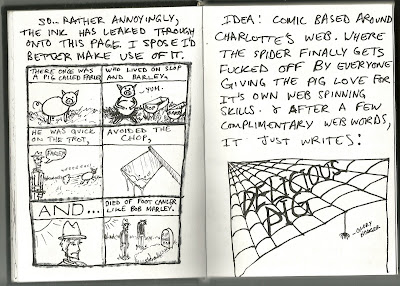 SO... RATHER ANNOYINGLY,
THE INK HAS LEAKED THROUGH
ONTO THIS PAGE. I SPOSE I'D
BETTER MAKE USE OF IT.
THERE ONCE WAS
A PIG CALLED FARLEY
WHO LIVED ON SLOP
AND BARLEY.
YUM.
HE WAS QUICK
ON THE TROT,
FARLEY!
AVOIDED THE
CHOP,
AND...
DIED OF FOOT CANCER
LIKE BOB MARLEY.
IDEA: COMIC BASED AROUND
CHARLOTTE'S WEB. WHERE
THE SPIDER FINALLY GETS
FUCKED OFF BY EVERYONE
GIVING THE PIG LOVE FOR
IT'S OWN WEB SPINNING
SKILLS. & AFTER A FEW
COMPLIMENTARY WEB WORDS,
IT JUST WRITES:
DELICIOUS
PIG